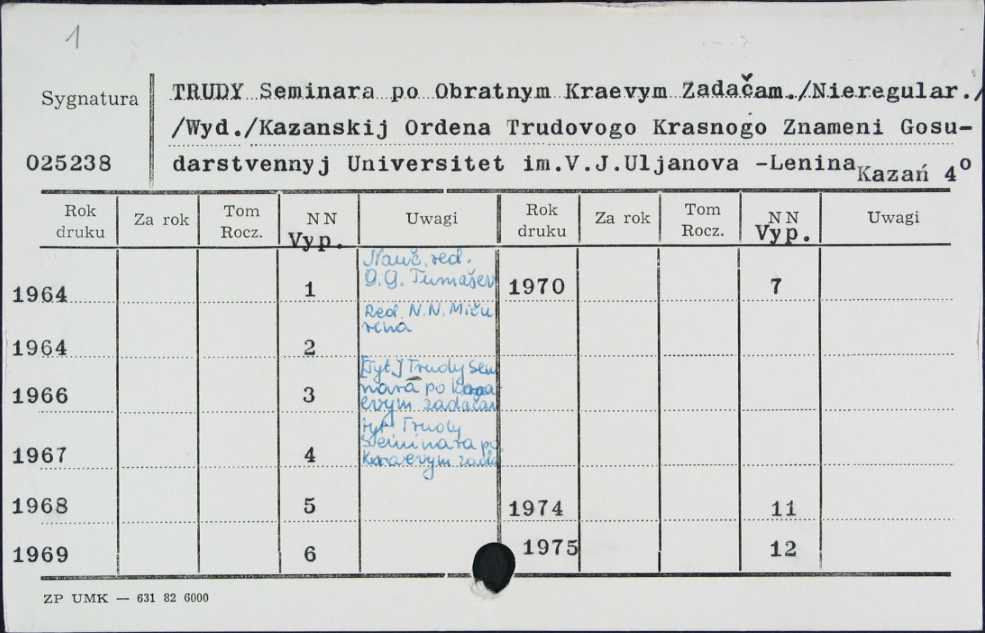 1
Sygnatura
025238
TRUDY Seminara po Obratnym Kraevym Zadačam./Nieregular./
/Wyd./Kazanskij Ordena Trudovogo Krasnogo Znameni Gosu-
darstvennyj Universitet im.V.J.Uljanova -Lenina Kazań 4°
Rok druku Za rok Tom Rocz. NN Vyp. Uwagi Rok druku Za rok Tom Rocz. NN Vyp. Uwagi
Nauč. red.
G.G. Tumašev
1964 1 1970 7
Red. N.N. Miču
rina
1964 2
[Tyt.] Trudy Sem
nara po kra
evym zadačam
1966 3
Tyt. Trudy
Seminara po
Kraevym zada
1967 4
1968 5 1974 11
1969 6 1975 12
ZP UMK — 631 82 6000